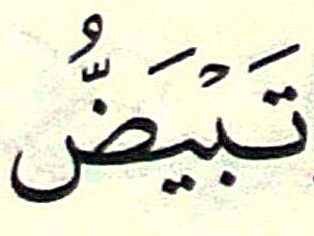 تَبْيَضُّ